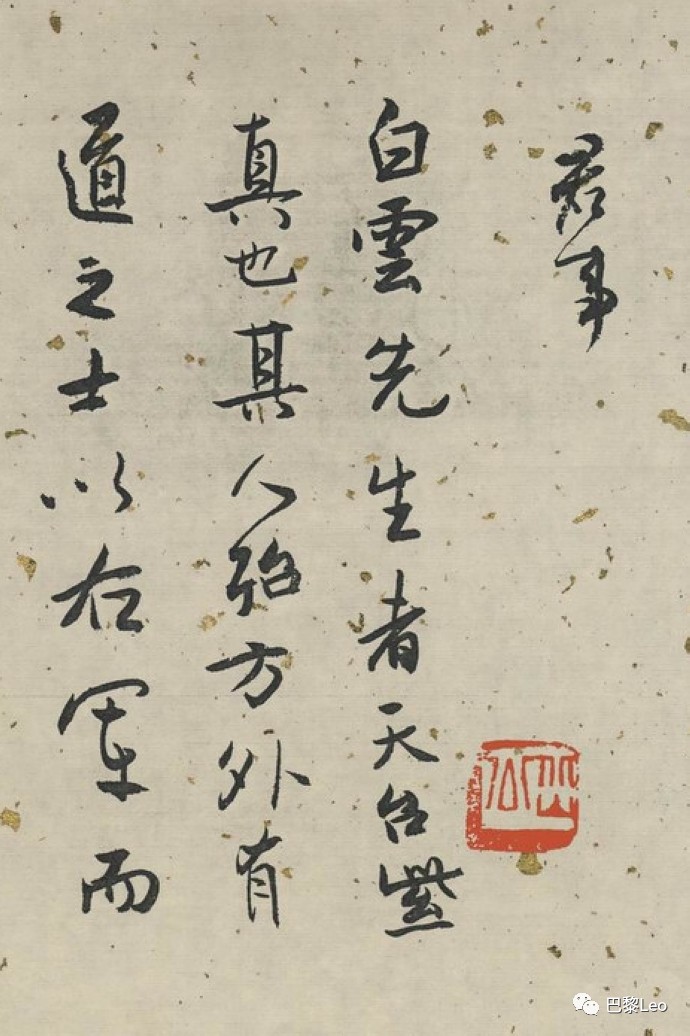 君事
白雲先生者天台紫
真也其人殆方外有
道之士以右軍而
巴黎Leo